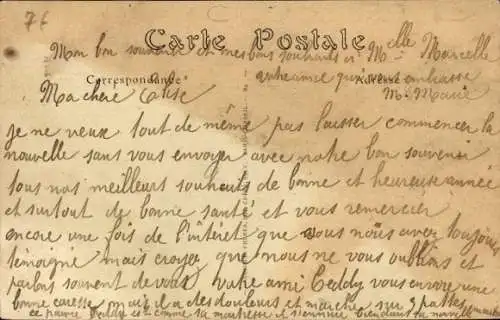 76
Mon bon souvenir de mes bons souhaits à Melle Marcelle
Carte Postale
votre amie qui embrasse
Correspondance
Adresse
Ma chère Élise
Me Marie
je ne veux tout de même pas laisser commencer la
nouvelle sans vous envoyer avec notre bon souvenir
tous nos meilleurs souhaits de bonne et heureuse année
et surtout de bonne santé et vous remercier
encore une fois de l'intéret que vous nous avez toujours
témoigné mais croyez que nous ne vous oublions et
parlons souvent de vous votre ami Teddy vous envoie une
bonne caresse mais il a des douleurs et marche sur 3 pattes
ce pauvre Teddy est comme sa maitresse il s'ennuie